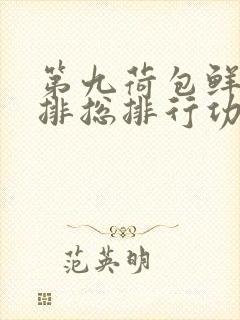 第九荷包鲜
排总排行功
范英明